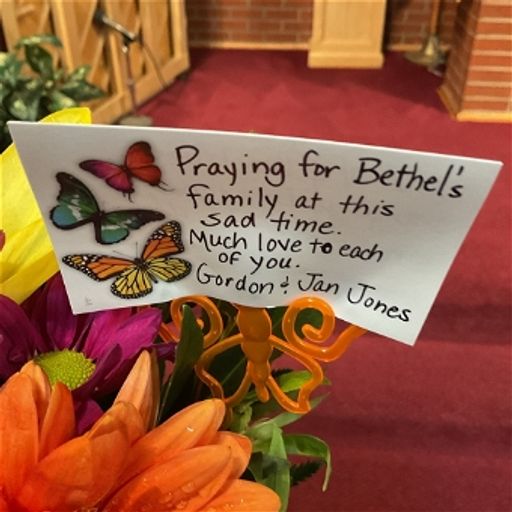 Praying for Bethel's
family at this
sad time.
Much love to each
of you.
Gordon & Jan Jones